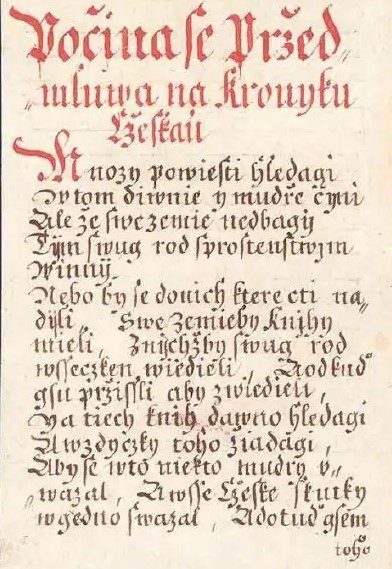 Počina se Przed„
„mluwa na Kronyku
Czeskau
Mnozy powiesti hledagi
W tom diwnie y mudrže čyni
Ale že swe zemie nedbagij
Tijm swug rod sprostenstwijm
Winnij.
Nebo by se donich ktere cti na„
dýli, Swe Zemie by Knihy
mieli, Znychžby swug rod
wsseczken wiedieli, A odkud
gsu przissli aby zwiedieli,
Ya tiech knih dawno hledagi
A wzdyczky toho žiadagi,
Aby se w to niekto mudry v„
„wazal, A wsse Czeske skutky
w gedno swazal, A dotud gsem
toho